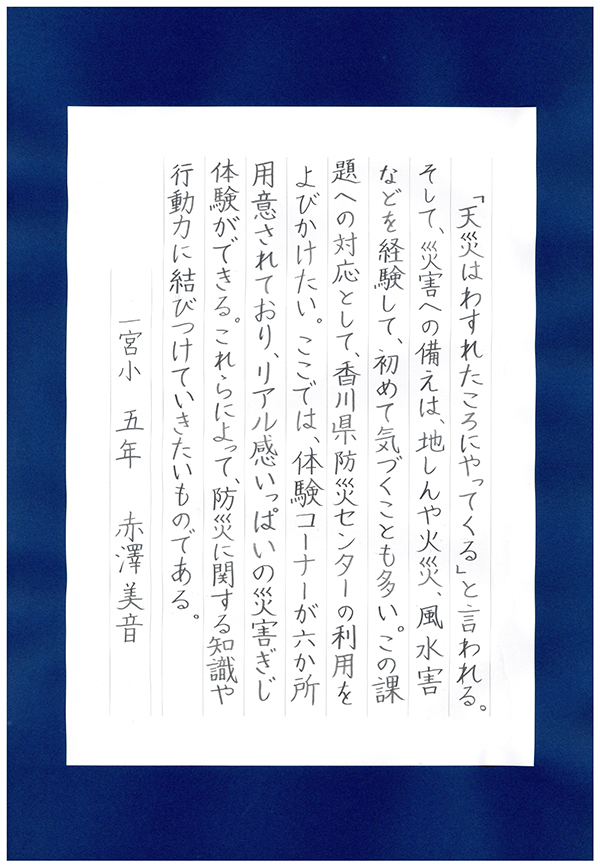 「天災はわすれたころにやってくる」と言われる。
そして、災害への備えは、地しんや火災、風水害
などを経験して、初めて気づくことも多い。この課
題への対応として、香川県防災センターの利用を
よびかけたい。ここでは、体験コーナーが六か所
用意されており、リアル感いっぱいの災害ぎじ
体験ができる。これらによって、防災に関する知識や
行動力に結びつけていきたいものである。
一宮小 五年 赤澤美音